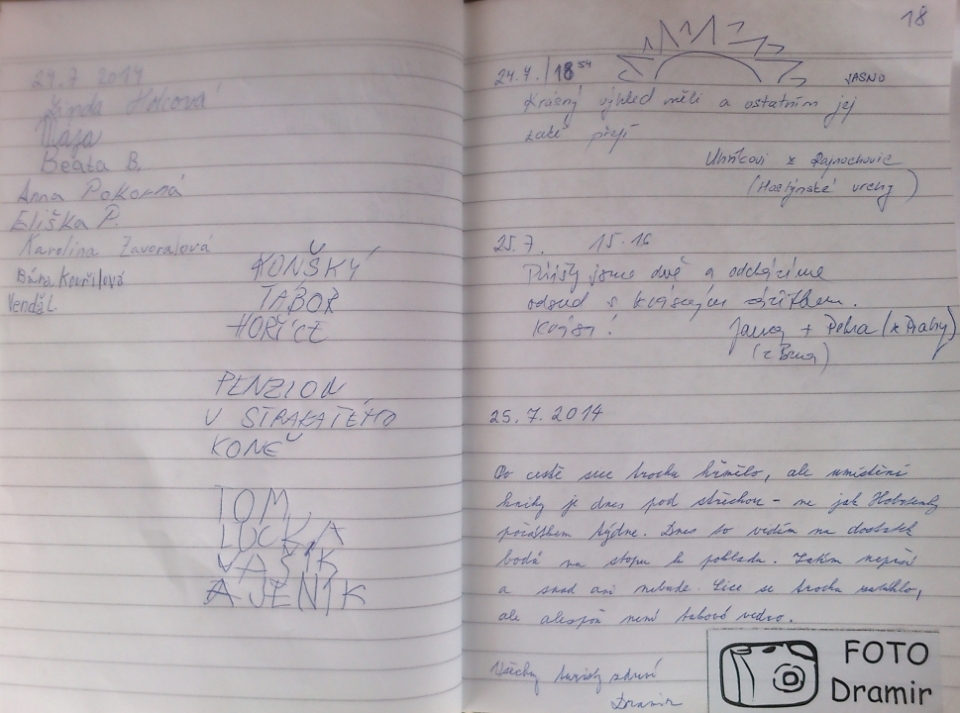 24.7 2014
Linda Holcová
Naza
Beáta B.
Anna Pokorná
Eliška P.
Karolina Zavoralová
Bára Kouřilová
Venda L.
KOŇSKÝ
TÁBOR
HOŘICE
PENZION
U STRAKATÉHO
KONĚ
TOM,
LUCKA
VAŠÍK
A JENÍK
18
24.7. / 18 54
JASNO
Krásný výhled měli a ostatním jej
také přejí
z Rajnochovic
(Hostýnské vrchy)
25.7. 15.16
Přišly jsme dvě a odcházíme
odsud s krásným zážitkem.
Krása! Jana + Petra (z Prahy)
(z Brna)
25. 7. 2014
Po cestě sice trochu hřmělo, ale umístění
knihy je dnes pod střechou - ne jak
počátkem týdne. Dnes to vidím na dostatek
bodů na stopu k pokladu. Zatím neprší
a snad ani nebude. Sice se trochu
ale alespoň není takové vedro.
Všechny turisty zdraví
Dramir
FOTO
Dramir